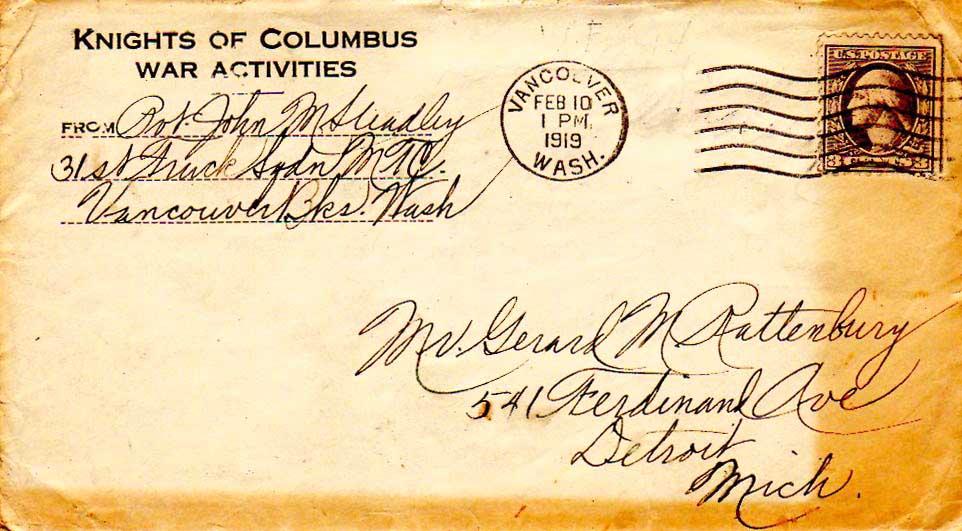 KNIGHTS OF COLUMBUS
WAR ACTIVITIES
FROM Pvt. John M. Steadley
31st Truck Sqdn M.T.C.
Vancouver Bks. Wash
VANCOUVER
FEB 10
1 PM.
1919
WASH.
U.S. POSTAGE
3 CENTS 3
Mr. Gerard M. Rattenbury
541 Ferdinand Ave
Detroit
Mich.